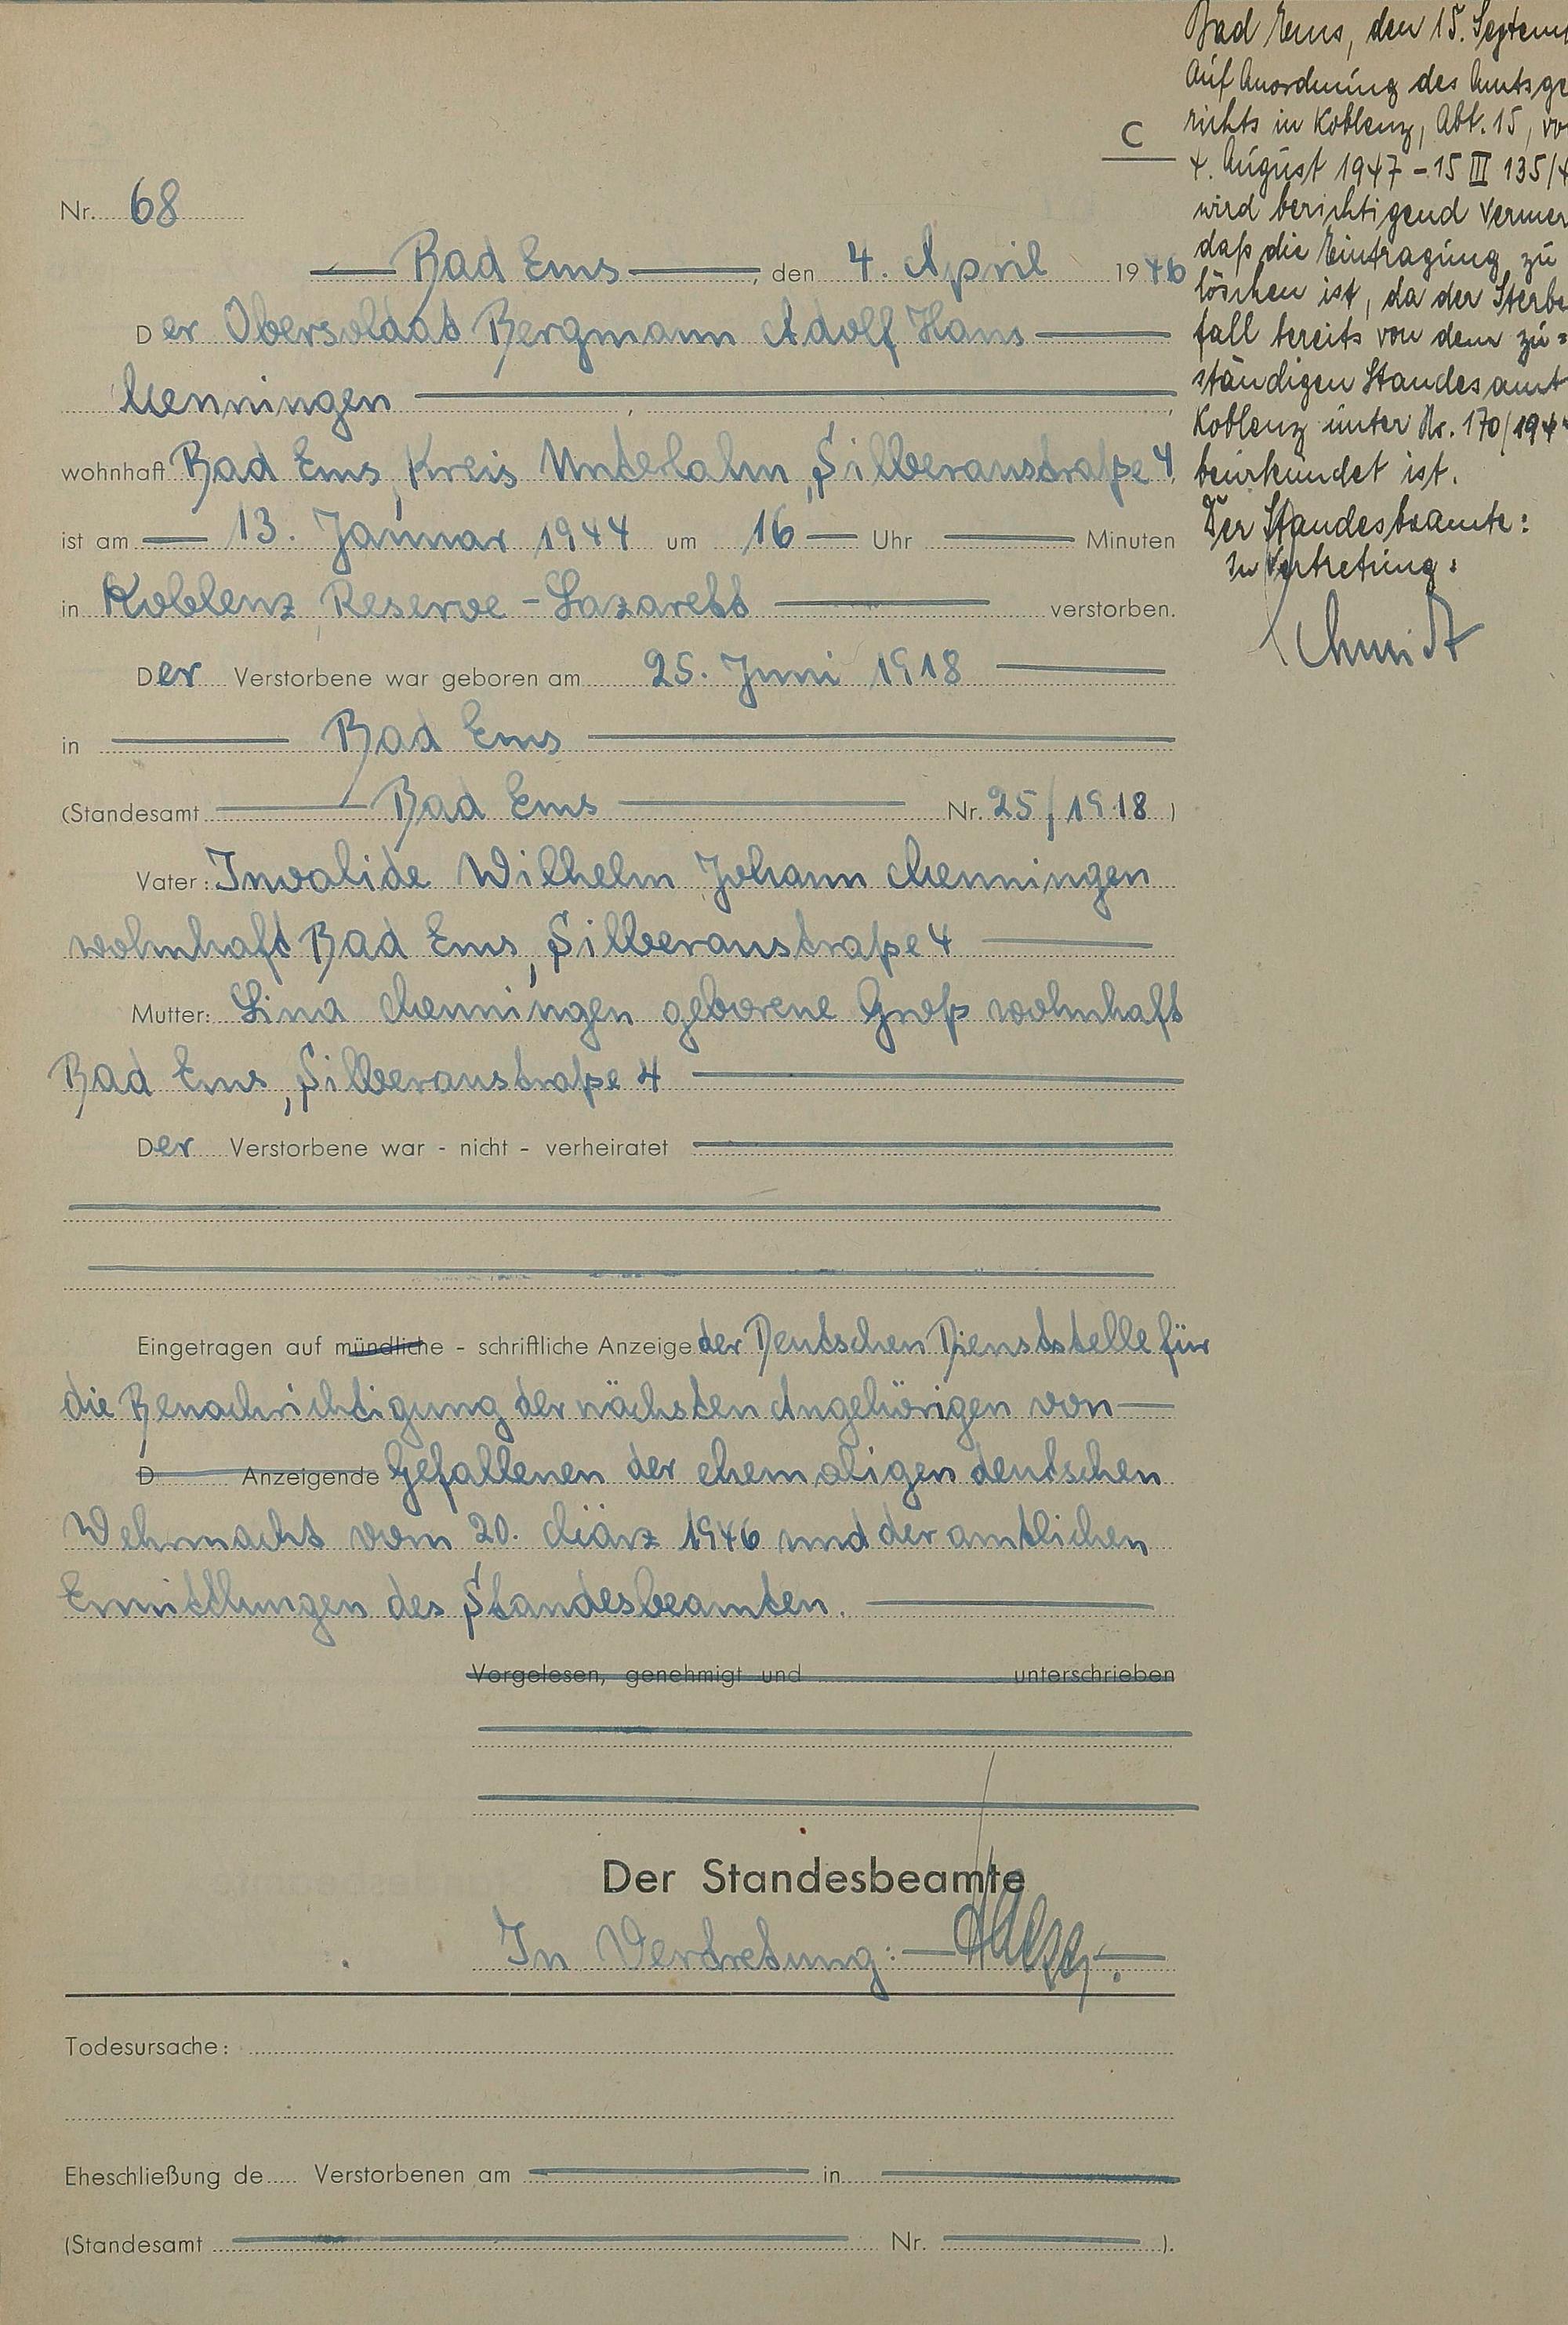 Bad Ems, den 15. Septem
Auf Anordnung des Amtsge
richts in Koblenz, Abt. 15, vo
4. August 1947 - 15 III 135/4
wird berichtigend vermer
daß die Eintragung zu
löschen ist, da der Sterbe
fall bereits von dem zu=
ständigen Standesamt
Koblenz unter Nr. 170/194
beurkundet ist.
Der Standesbeamte:
In Vertretung:
Schmidt
C
Nr. 68
Bad Ems, den 4. April 1946
Der Obersoldat Bergmann Adolf Hans
Menningen
wohnhaft Bad Ems, Kreis Unterlahn, Silberaustraße 4
ist am 13. Januar 1944 um 16 Uhr Minuten
in Koblenz, Reserve-Lazarett verstorben.
Der Verstorbene war geboren am 25. Juni 1918
in Bad Ems
(Standesamt Bad Ems Nr. 25/1918)
Vater: Invalide Wilhelm Johann Menningen
wohnhaft Bad Ems, Silberaustraße 4
Mutter: Lina Menningen geborene Groß wohnhaft
Bad Ems, Silberaustraße 4
Der Verstorbene war - nicht - verheiratet
Eingetragen auf mündliche - schriftliche Anzeige der Deutschen Dienststelle für
die Benachrichtigung der nächsten Angehörigen von
D Anzeigende Gefallenen der ehemaligen deutschen
Wehrmacht vom 20. März 1946 und der amtlichen
Ermittlungen des Standesbeamten.
Vorgelesen, genehmigt und unterschrieben
Der Standesbeamte
In Vertretung:
Todesursache:
Eheschließung de Verstorbenen am in
(Standesamt Nr. ).